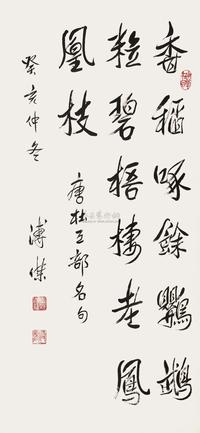 香稻啄餘鸚鵡
粒碧梧棲老鳳
凰枝
唐杜工部名句
癸亥仲冬
溥傑